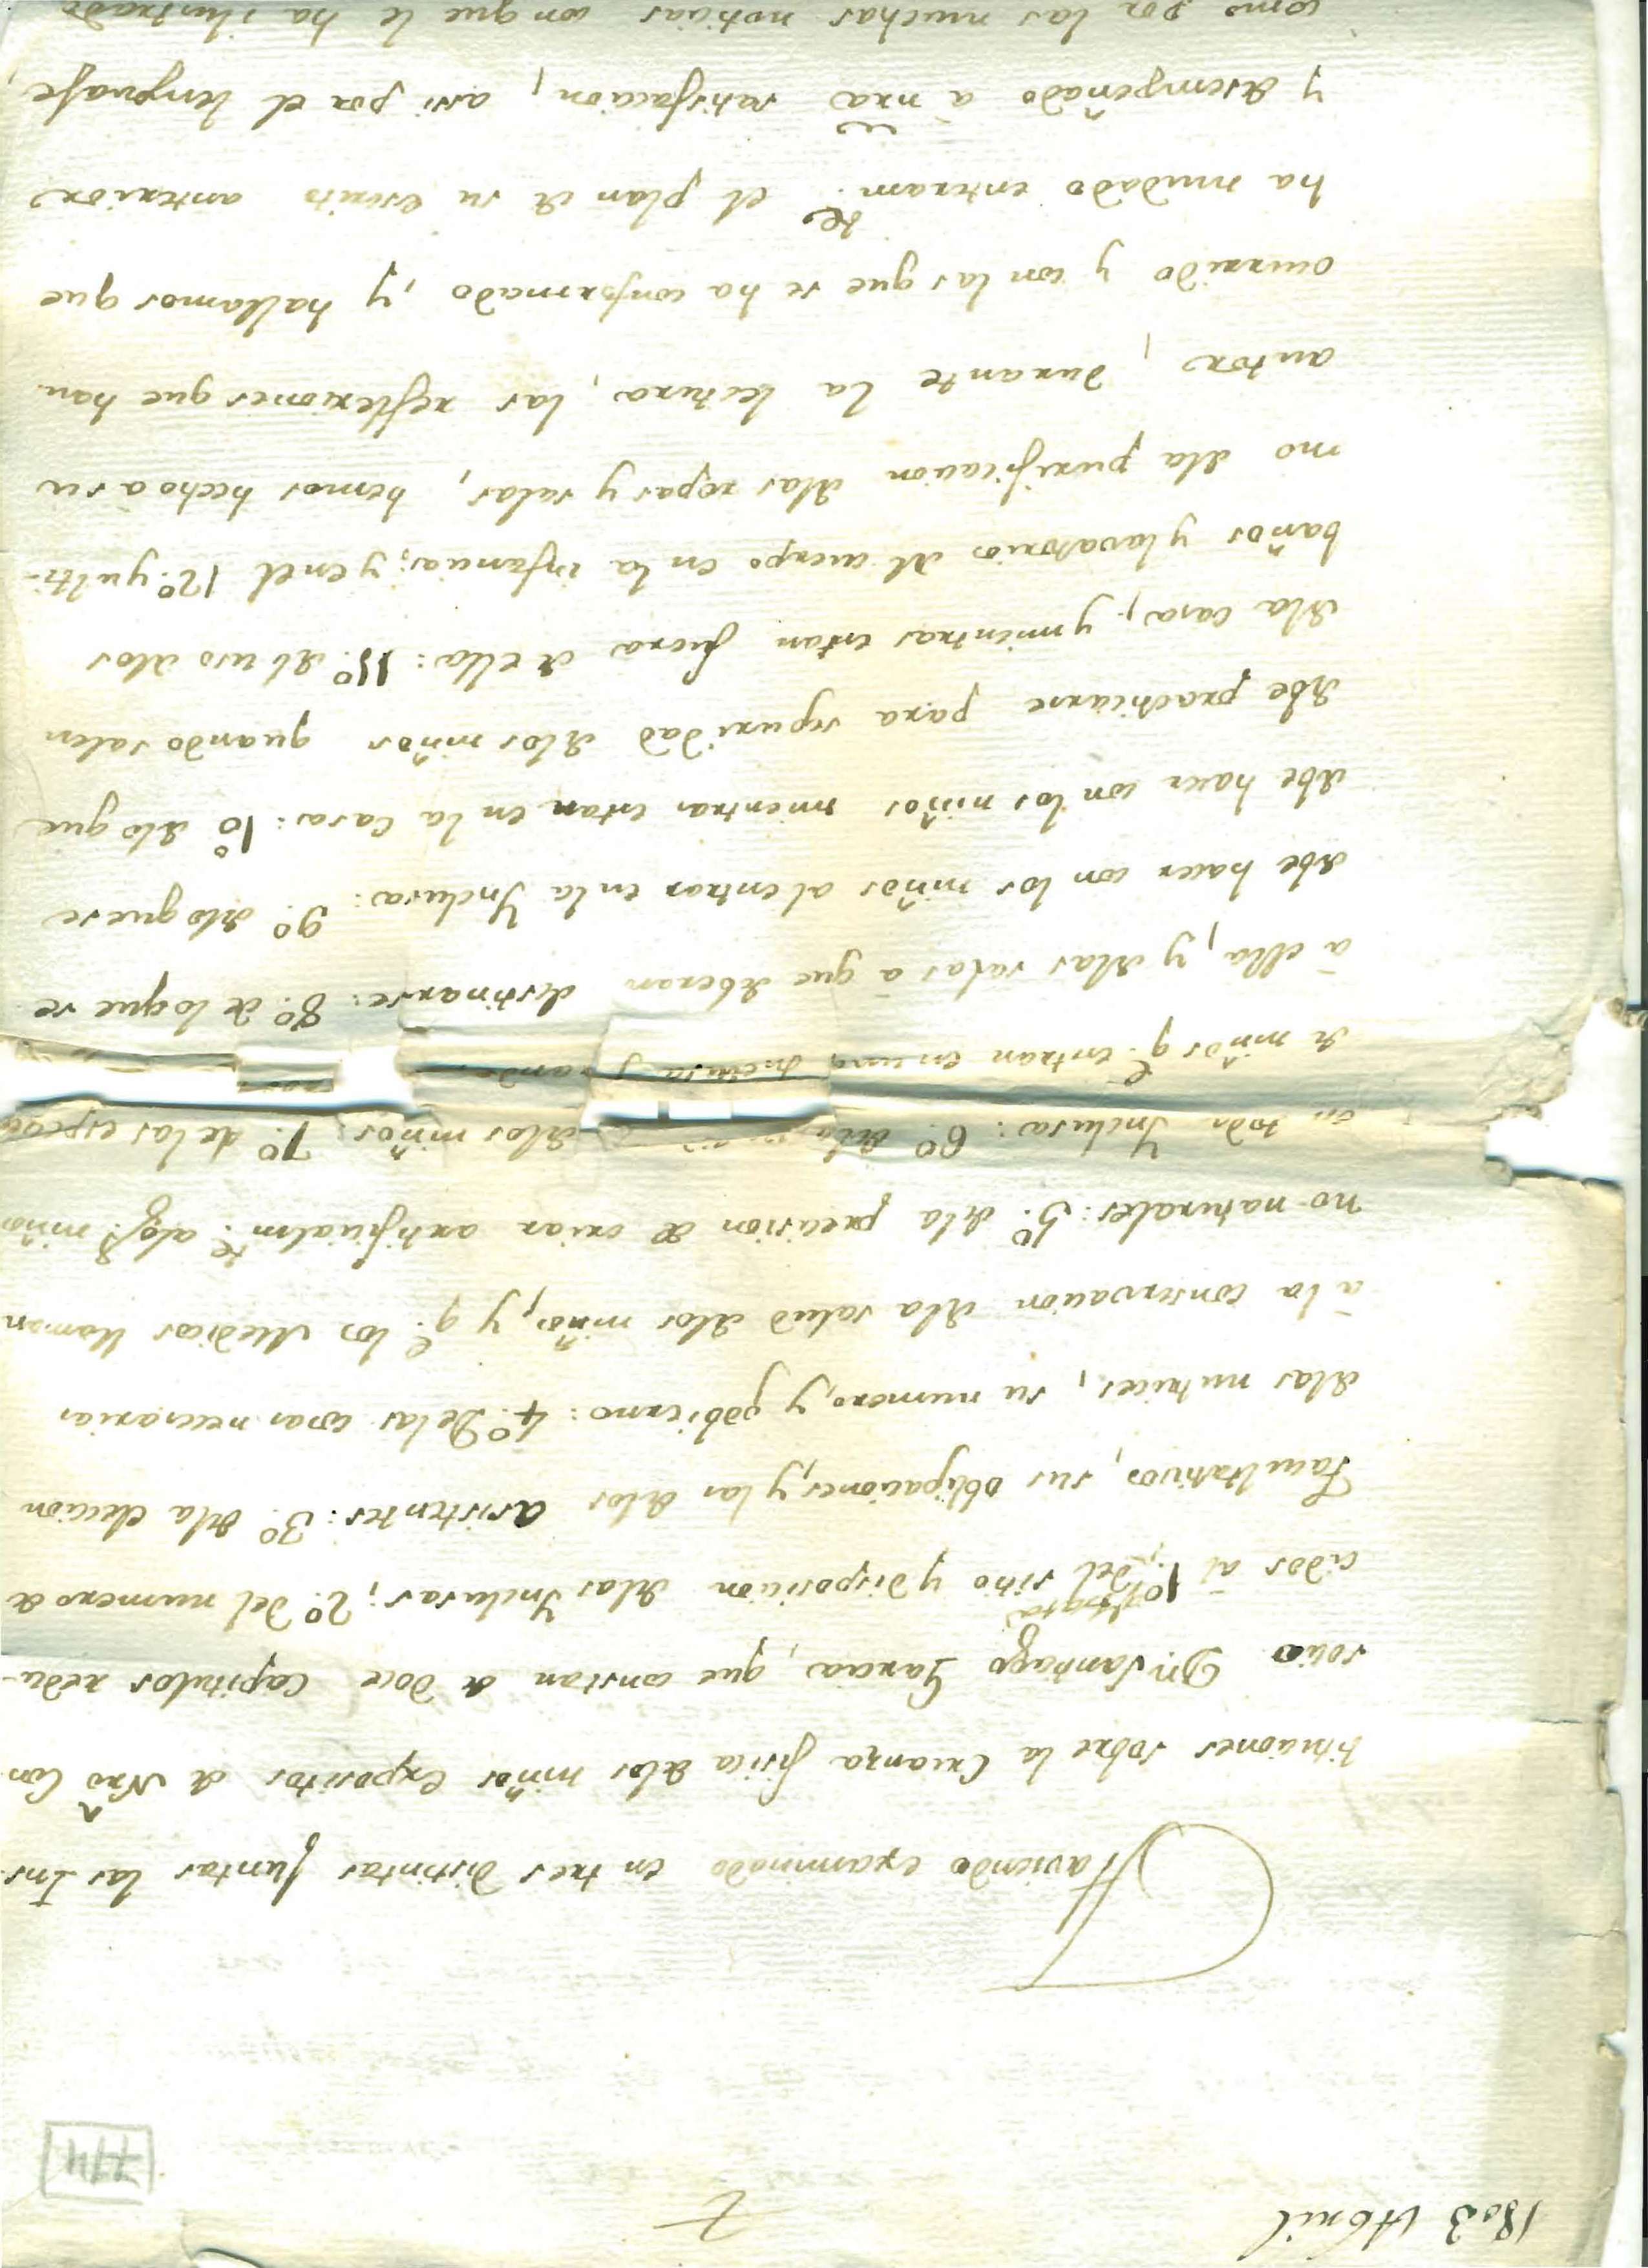 1803 Abril
774
Haviendo examinado en tres distintas Juntas las Ins-
tituciones sobre la Crianza fisica de los niños expositos de Nr̃o Con
socio Dn. Santiago Garcia, que constan de doce Capitulos redu-
cidos á trata
1º, del sitio y disposicion delas Inclusas; 2º. del numero de
Facultativos, sus obligaciones, y las delos asistentes: 3º. dela eleccion
delas nutrices, su numero, y gobierno: 4º. De las cosas necesarias
á la conservacion dela salud delos niños, y q.e los Medicos llaman
no-naturales: 5º. dela precision de criar artificialm.te alg.s niños
en toda Inclusa: 6º. delos niños: 7º. de las especies
de niños q.e entran en una Inclusa grande
á ella, y delas salas á que deberan destinarse: 8º. de loque se
debe hacer con los niños al entrar en la Inclusa: 9º. delo que se
debe hacer con los niños mientras estan en la Casa: 10º delo que
debe practicarse para seguridad delos niños quando salen
dela casa, y mientras estan fuera de ella: 11º. del uso delos
baños y lavatorios del cuerpo en la infancia; y en el 12º. y ulti-
mo dela purificacion delas ropas y salas, hemos hecho a su
autor, durante la lectura, las reflexiones que han
ocurrido y con las que se ha conformado, y hallamos que
ha mudado enteram.te el plan de su escrito anterior
y desempeñado á nr̃a satisfacion, asi por el lenguaje,
como por las muchas noticias con que le ha ilustrado